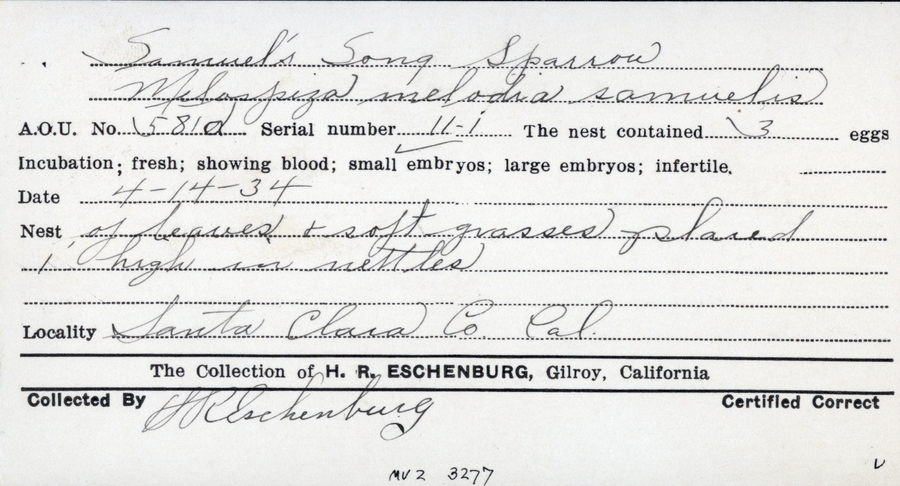 Samuel's Song Sparrow
Melospiza melodia samuelis
A.O.U. No. 581d Serial number 11-1 The nest contained 3 eggs
Incubation; fresh; showing blood; small embryos; large embryos; infertile.
Date 4-14-34
Nest of leaves & soft grasses placed
1' high in nettles
Locality Santa Clara Co. Cal.
The Collection of H. R. ESCHENBURG, Gilroy, California
Collected By HREschenburg Certified Correct
MVZ 3277